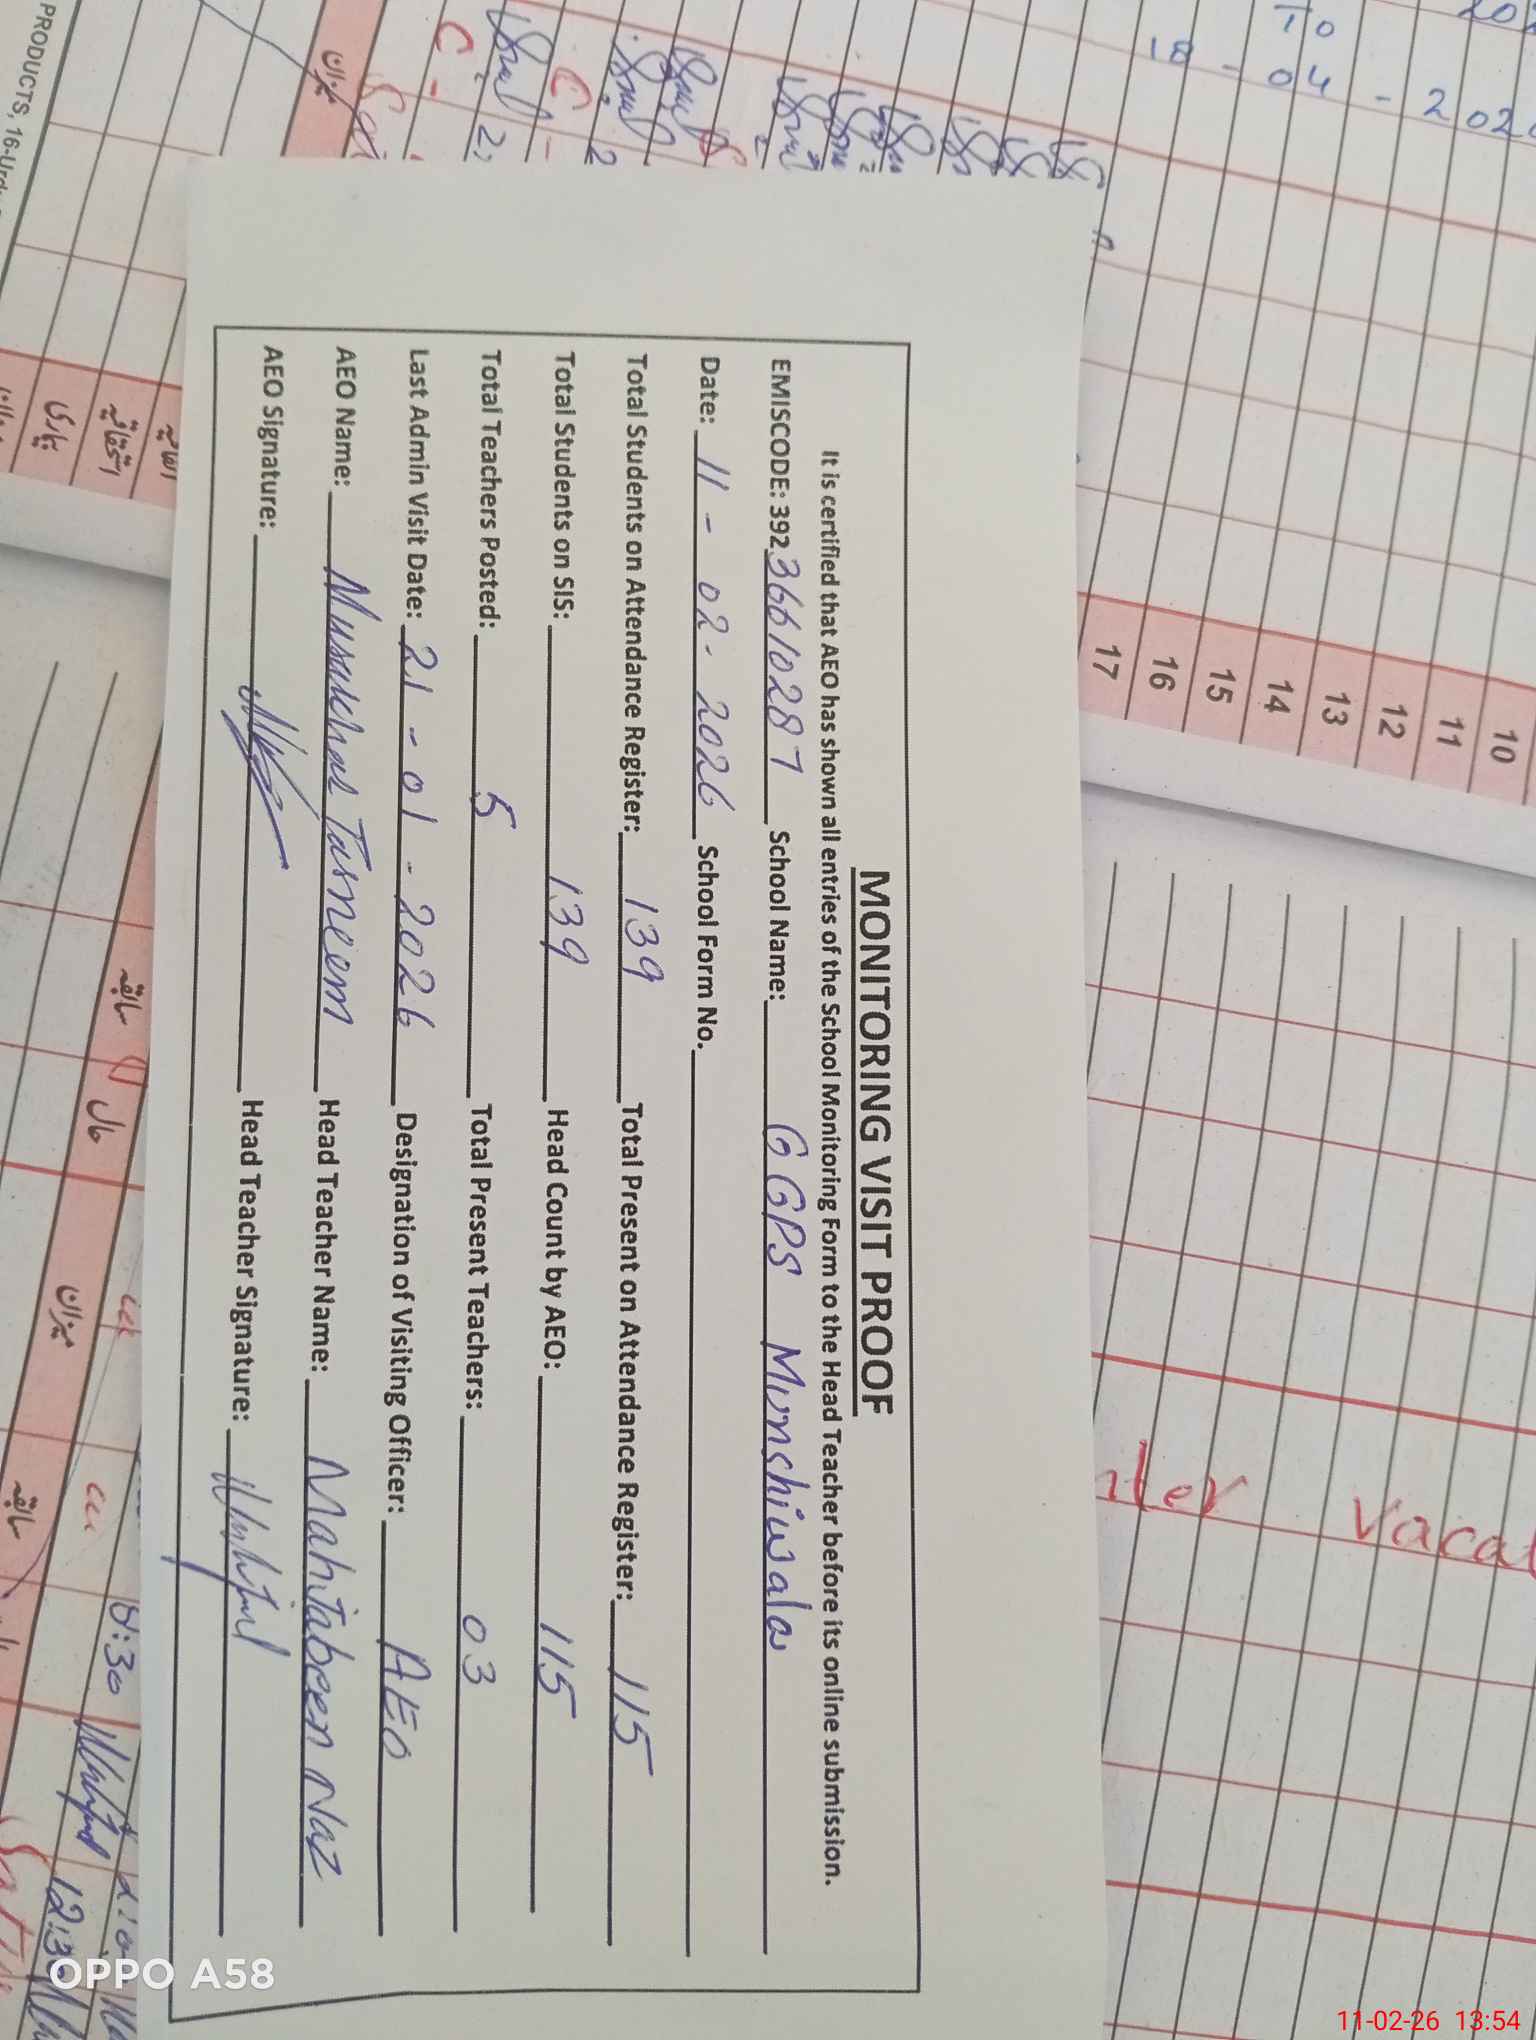 MONITORING VISIT PROOF
It is certified that AEO has shown all entries of the School Monitoring Form to the Head Teacher before its online submission.
EMISCODE: 39236610287 School Name: GGPS Munshiwala
Date: 11-02-2026 School Form No.
Total Students on Attendance Register: 139 Total Present on Attendance Register: 115
Total Students on SIS: 139 Head Count by AEO: 115
Total Teachers Posted: 5 Total Present Teachers: 03
Last Admin Visit Date: 21-01-2026 Designation of Visiting Officer: AEO
AEO Name: Musakhas Tasneem Head Teacher Name: Mahitabeen Naz
AEO Signature: Head Teacher Signature:
PRODUCTS, 16-Urdu
TO
18-04-202
10
11
12
13
14
15
16
17
vaca
میزان
بیماری
اتفاقیہ
سابقہ
حال
میزان
سابقہ
8:30
12:30
OPPO A58
11-02-26 13:54